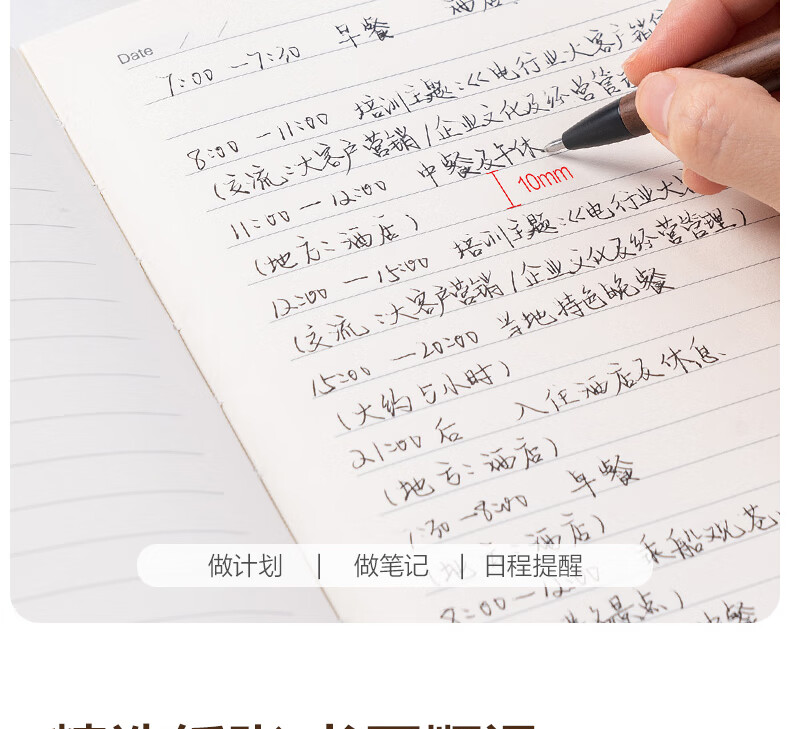 Date / /
7:00 —7:30 早餐 酒店
8:00 —11:00 培训主题:《电行业大客户销
(交流:大客户营销/企业文化及经营管理
11:00 — 12:00 中餐及午休
10mm
(地方:酒店)
12:00 — 15:00 培训主题:《电行业大
(交流:大客户营销/企业文化及经营管理)
15:00 —20:00 当地特色晚餐
(大约5小时)
21:00 后 入住酒店及休息
(地方:酒店)
:30 —8:00 早餐
(地方:酒店)
8:00 —12:00 乘船观
景点) 中餐
做计划 | 做笔记 | 日程提醒